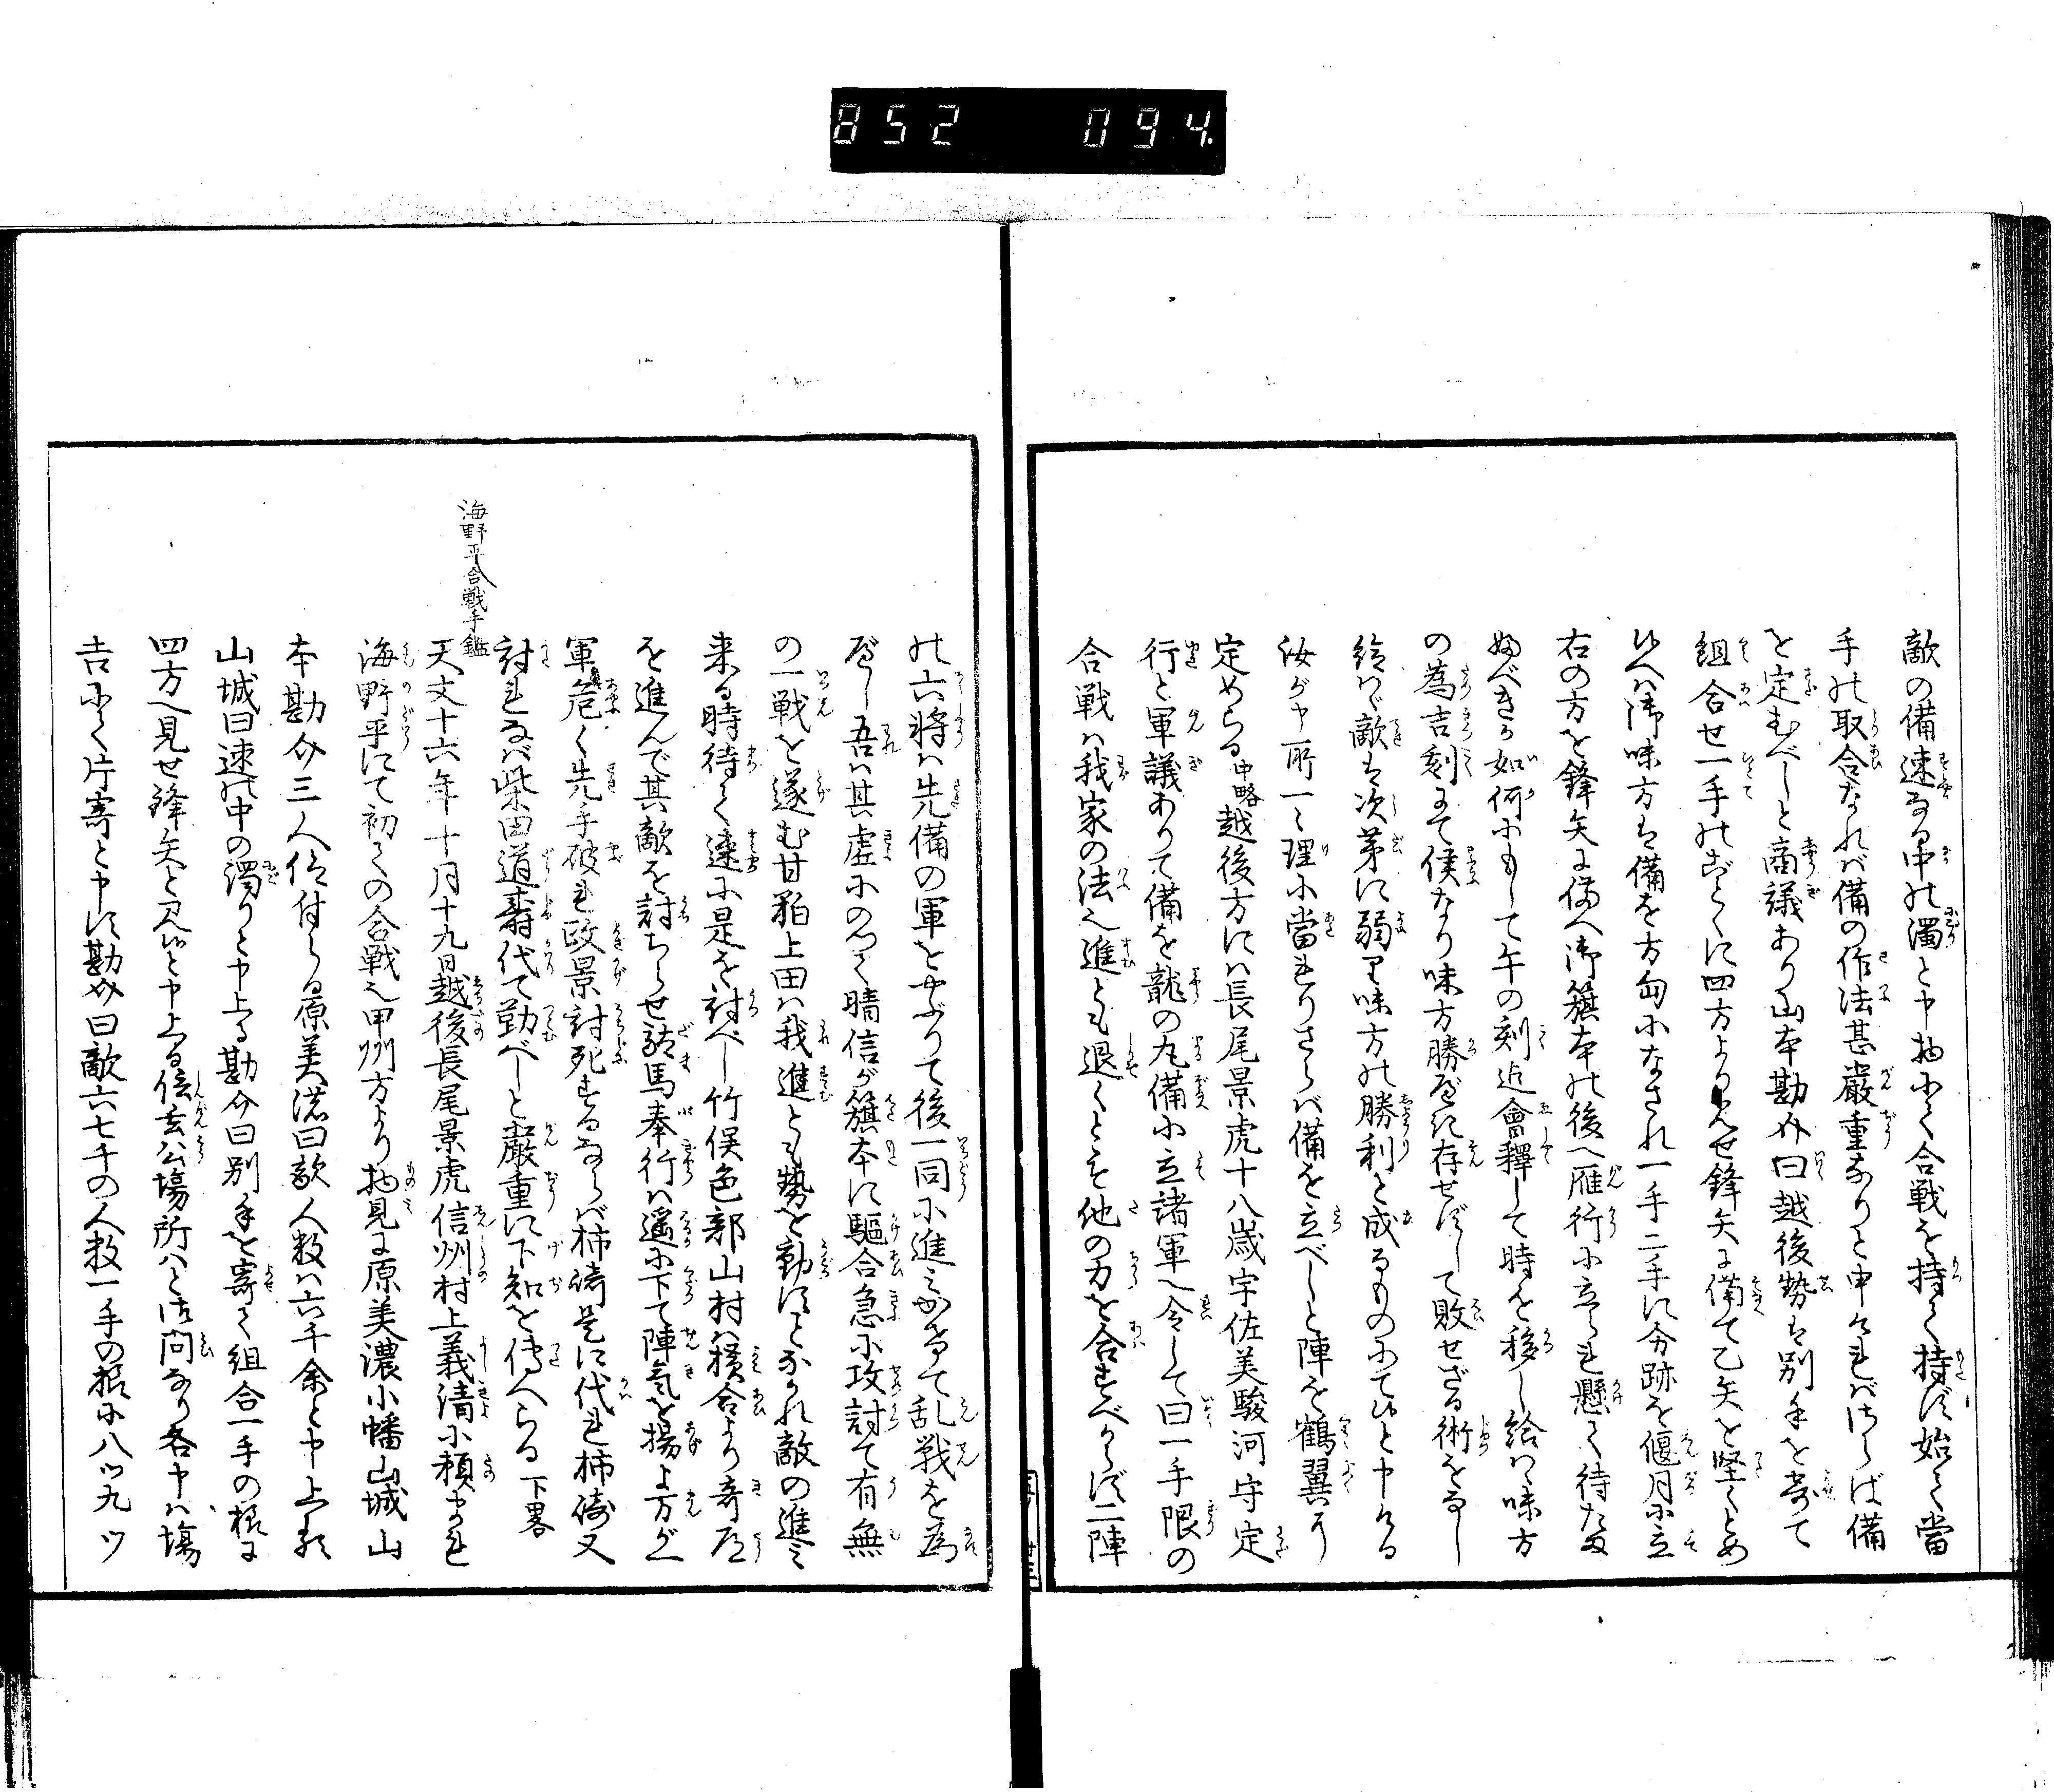 852 094.
敵の備速なる中の濁と申抽にて合戦を持て持ず始て當
手の取合なれば備の作法甚嚴重なりと申ければさらば備
を定むべしと商議あり山本勘介曰越後勢は別手を寄て
組合せ一手のごとくに四方より見せ鋒矢に備て乙矢を堅くとめ
候へば御味方は備を方向になされ一手二手に分跡を偃月に立
右の方を鋒矢に備へ御籏本の後へ雁行に立られ懸て待たま
ふべきか如何にもして午の刻迄會釋して時を移し給はゞ味方
の為吉刻にて候なり味方勝べきに存せずして敗せざる術をなし
給はゞ敵は次第に弱り味方の勝利と成るものにて候と申ける
汝が申所一々理に當れりさらば備を立べしと陣を鶴翼に
定めらる中略越後方には長尾景虎十八歳宇佐美駿河守定
行と軍議ありて備を龍の丸備に立諸軍へ令して曰一手限の
合戦は我家の法也進とも退くとも他の力を合すべからず二陣
の六將は先備の軍をやぶりて後一同に進みかゝて乱戦を為
べし吾は其虚にのつて晴信が籏本に駆合急に攻討て有無
の一戦を遂む甘粕上田は我進とも勢を動ずことなかれ敵の進み
来る時待て速に是を討べし竹俣色部山村は横合より奇兵
を進んで其敵を討ちらせ諸馬奉行は遥に下て陣気を揚よ万が一
軍危く先手破れ政景討死するならば柿崎是に代れ柿崎又
討れなば柴田道壽代て勤べしと嚴重に下知を傳へらる下畧
海野平合戦手鑑
天文十六年十月十九日越後長尾景虎信州村上義清に頼まれ
海野平にて初ての合戦也甲州方より物見に原美濃小幡山城山
本勘介三人仰付らる原美濃曰敵人数は六千余と申上る
山城曰速の中の濁りと申上る勘介曰別手を寄て組合一手の様に
四方へ見せ鋒矢と見ゆと申上る信玄公場所はと御問なり各申は場
吉にて片寄と申に勘介曰敵六七千の人数一手の様に八ツ九ツ